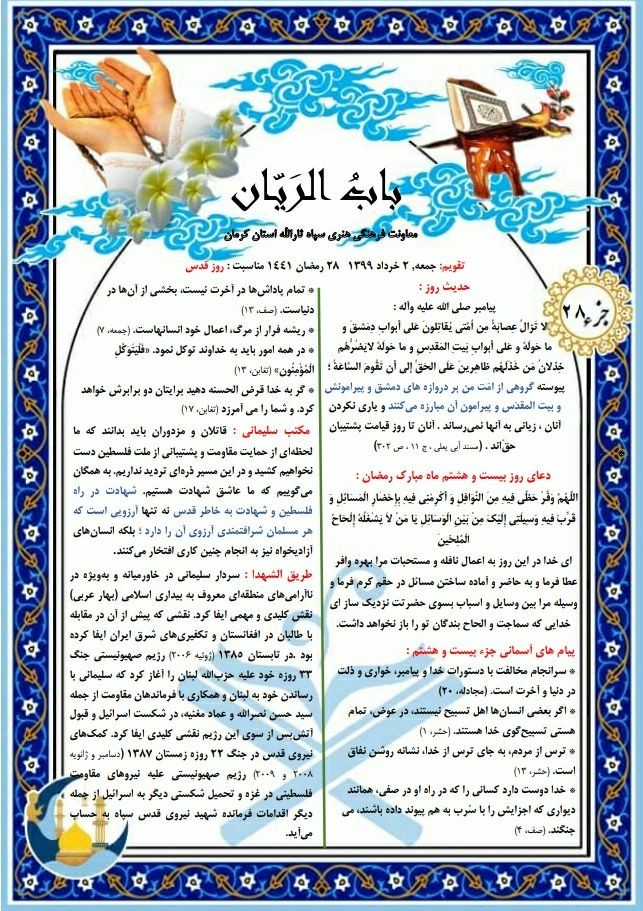 بابُ الرَیّان
معاونت فرهنگی هنری سپاه ثارالله استان کرمان
تقویم: جمعه، ۲ خرداد ۱۳۹۹ ۲۸ رمضان ۱۴۴۱ مناسبت : روز قدس
جزء ۲۸
حدیث روز :
پیامبر صلی الله علیه وآله :
لا تَزالُ عِصابَةٌ مِن اُمَّتی یُقاتِلونَ عَلی أبوابِ دِمَشقَ و
ما حَولَهُ وَ عَلی أبوابِ بَیتِ المَقدِسِ وَ ما حَولَهُ لایَضُرُّهُم
خِذلانُ مَن خَذَلَهُم ظاهِرینَ عَلَی الحَقِّ إلی أن تَقومَ السّاعَةُ ؛
پیوسته گروهی از امّت من بر دروازه های دمشق و پیرامونش
و بیت المقدّس و پیرامون آن مبارزه می‌کنند و یاری نکردن
آنان ، زیانی به آنها نمی‌رساند . آنان تا روز قیامت پشتیبان
حق‌اند . (مسند أبی یعلی ، ج ۱۱ ، ص ۳۰۲)
دعای روز بیست و هشتم ماه مبارک رمضان :
اللهُمّ وفّر حَظّی فیهِ مِنَ النّوافِلِ وَ أکْرِمْنی فیهِ بإحْضارِ المَسائِلِ وَ
قَرّبْ فیهِ وسیلَتی إلیْکَ مِنْ بَیْنِ الوَسائِل یا مَنْ لا یَشْغَلُهُ إلْحاحُ
المُلِحّینَ
ای خدا در این روز به اعمال نافله و مستحبات مرا بهره وافر
عطا فرما و به حاضر و آماده ساختن مسائل در حقم کرم فرما و
وسیله مرا بین وسایل و اسباب بسوی حضرتت نزدیک ساز ای
خدایی که سماجت و الحاح بندگان تو را باز نخواهد داشت.
پیام های آسمانی جزء بیست و هشتم :
* سرانجام مخالفت با دستورات خدا و پیامبر، خواری و ذلت
در دنیا و آخرت است. (مجادله، ۲۰)
* اگر بعضی انسان‌ها اهل تسبیح نیستند، در عوض، تمام
هستی تسبیح‌گوی خدا هستند. (حشر، ۱)
* ترس از مردم، به جای ترس از خدا، نشانه روشن نفاق
است. (حشر، ۱۳)
* خدا دوست دارد کسانی را که در راه او در صفی، همانند
دیواری که اجزایش را با سُرب به هم پیوند داده باشند، می
جنگند. (صف، ۴)
* تمام پاداش‌ها در آخرت نیست، بخشی از آن‌ها در
دنیاست. (صف، ۱۳)
* ریشه فرار از مرگ، اعمال خود انسانهاست. (جمعه، ۷)
* در همه امور باید به خداوند توکل نمود. «فَلْیَتَوَکَّلِ
الْمُؤْمِنُونَ» (تغابن، ۱۳)
* گر به خدا قرض الحسنه دهید برایتان دو برابرش خواهد
کرد. و شما را می آمرزد (تغابن، ۱۷)
مکتب سلیمانی : قاتلان و مزدوران باید بدانند که ما
لحظه‌ای از حمایت مقاومت و پشتیبانی از ملت فلسطین دست
نخواهیم کشید و در این مسیر ذره‌ای تردید نداریم. به همگان
می‌گوییم که ما عاشق شهادت هستیم. شهادت در راه
فلسطین و شهادت به خاطر قدس نه تنها آرزویی است که
هر مسلمان شرافتمندی آرزوی آن را دارد ؛ بلکه انسان‌های
آزادیخواه نیز به انجام چنین کاری افتخار می‌کنند.
طریق الشهدا : سردار سلیمانی در خاورمیانه و به‌ویژه در
ناآرامی‌های منطقه‌ای معروف به بیداری اسلامی (بهار عربی)
نقش کلیدی و مهمی ایفا کرد. نقشی که پیش از آن در مقابله
با طالبان در افغانستان و تکفیری‌های شرق ایران ایفا کرده
بود .در تابستان ۱۳۸۵ (ژوئیه ۲۰۰۶) رژیم صهیونیستی جنگ
۳۳ روزه خود علیه حزب‌الله لبنان را آغاز کرد که سلیمانی با
رساندن خود به لبنان و همکاری با فرماندهان مقاومت از جمله
سید حسن نصرالله و عماد مغنیه، در شکست اسرائیل و قبول
آتش‌بس از سوی این رژیم نقشی کلیدی ایفا کرد. کمک‌های
نیروی قدس در جنگ ۲۲ روزه زمستان ۱۳۸۷ (دسامبر و ژانویه
۲۰۰۸ و ۲۰۰۹) رژیم صهیونیستی علیه نیروهای مقاومت
فلسطینی در غزه و تحمیل شکستی دیگر به اسرائیل از جمله
دیگر اقدامات فرمانده شهید نیروی قدس سپاه به حساب
می‌آید.